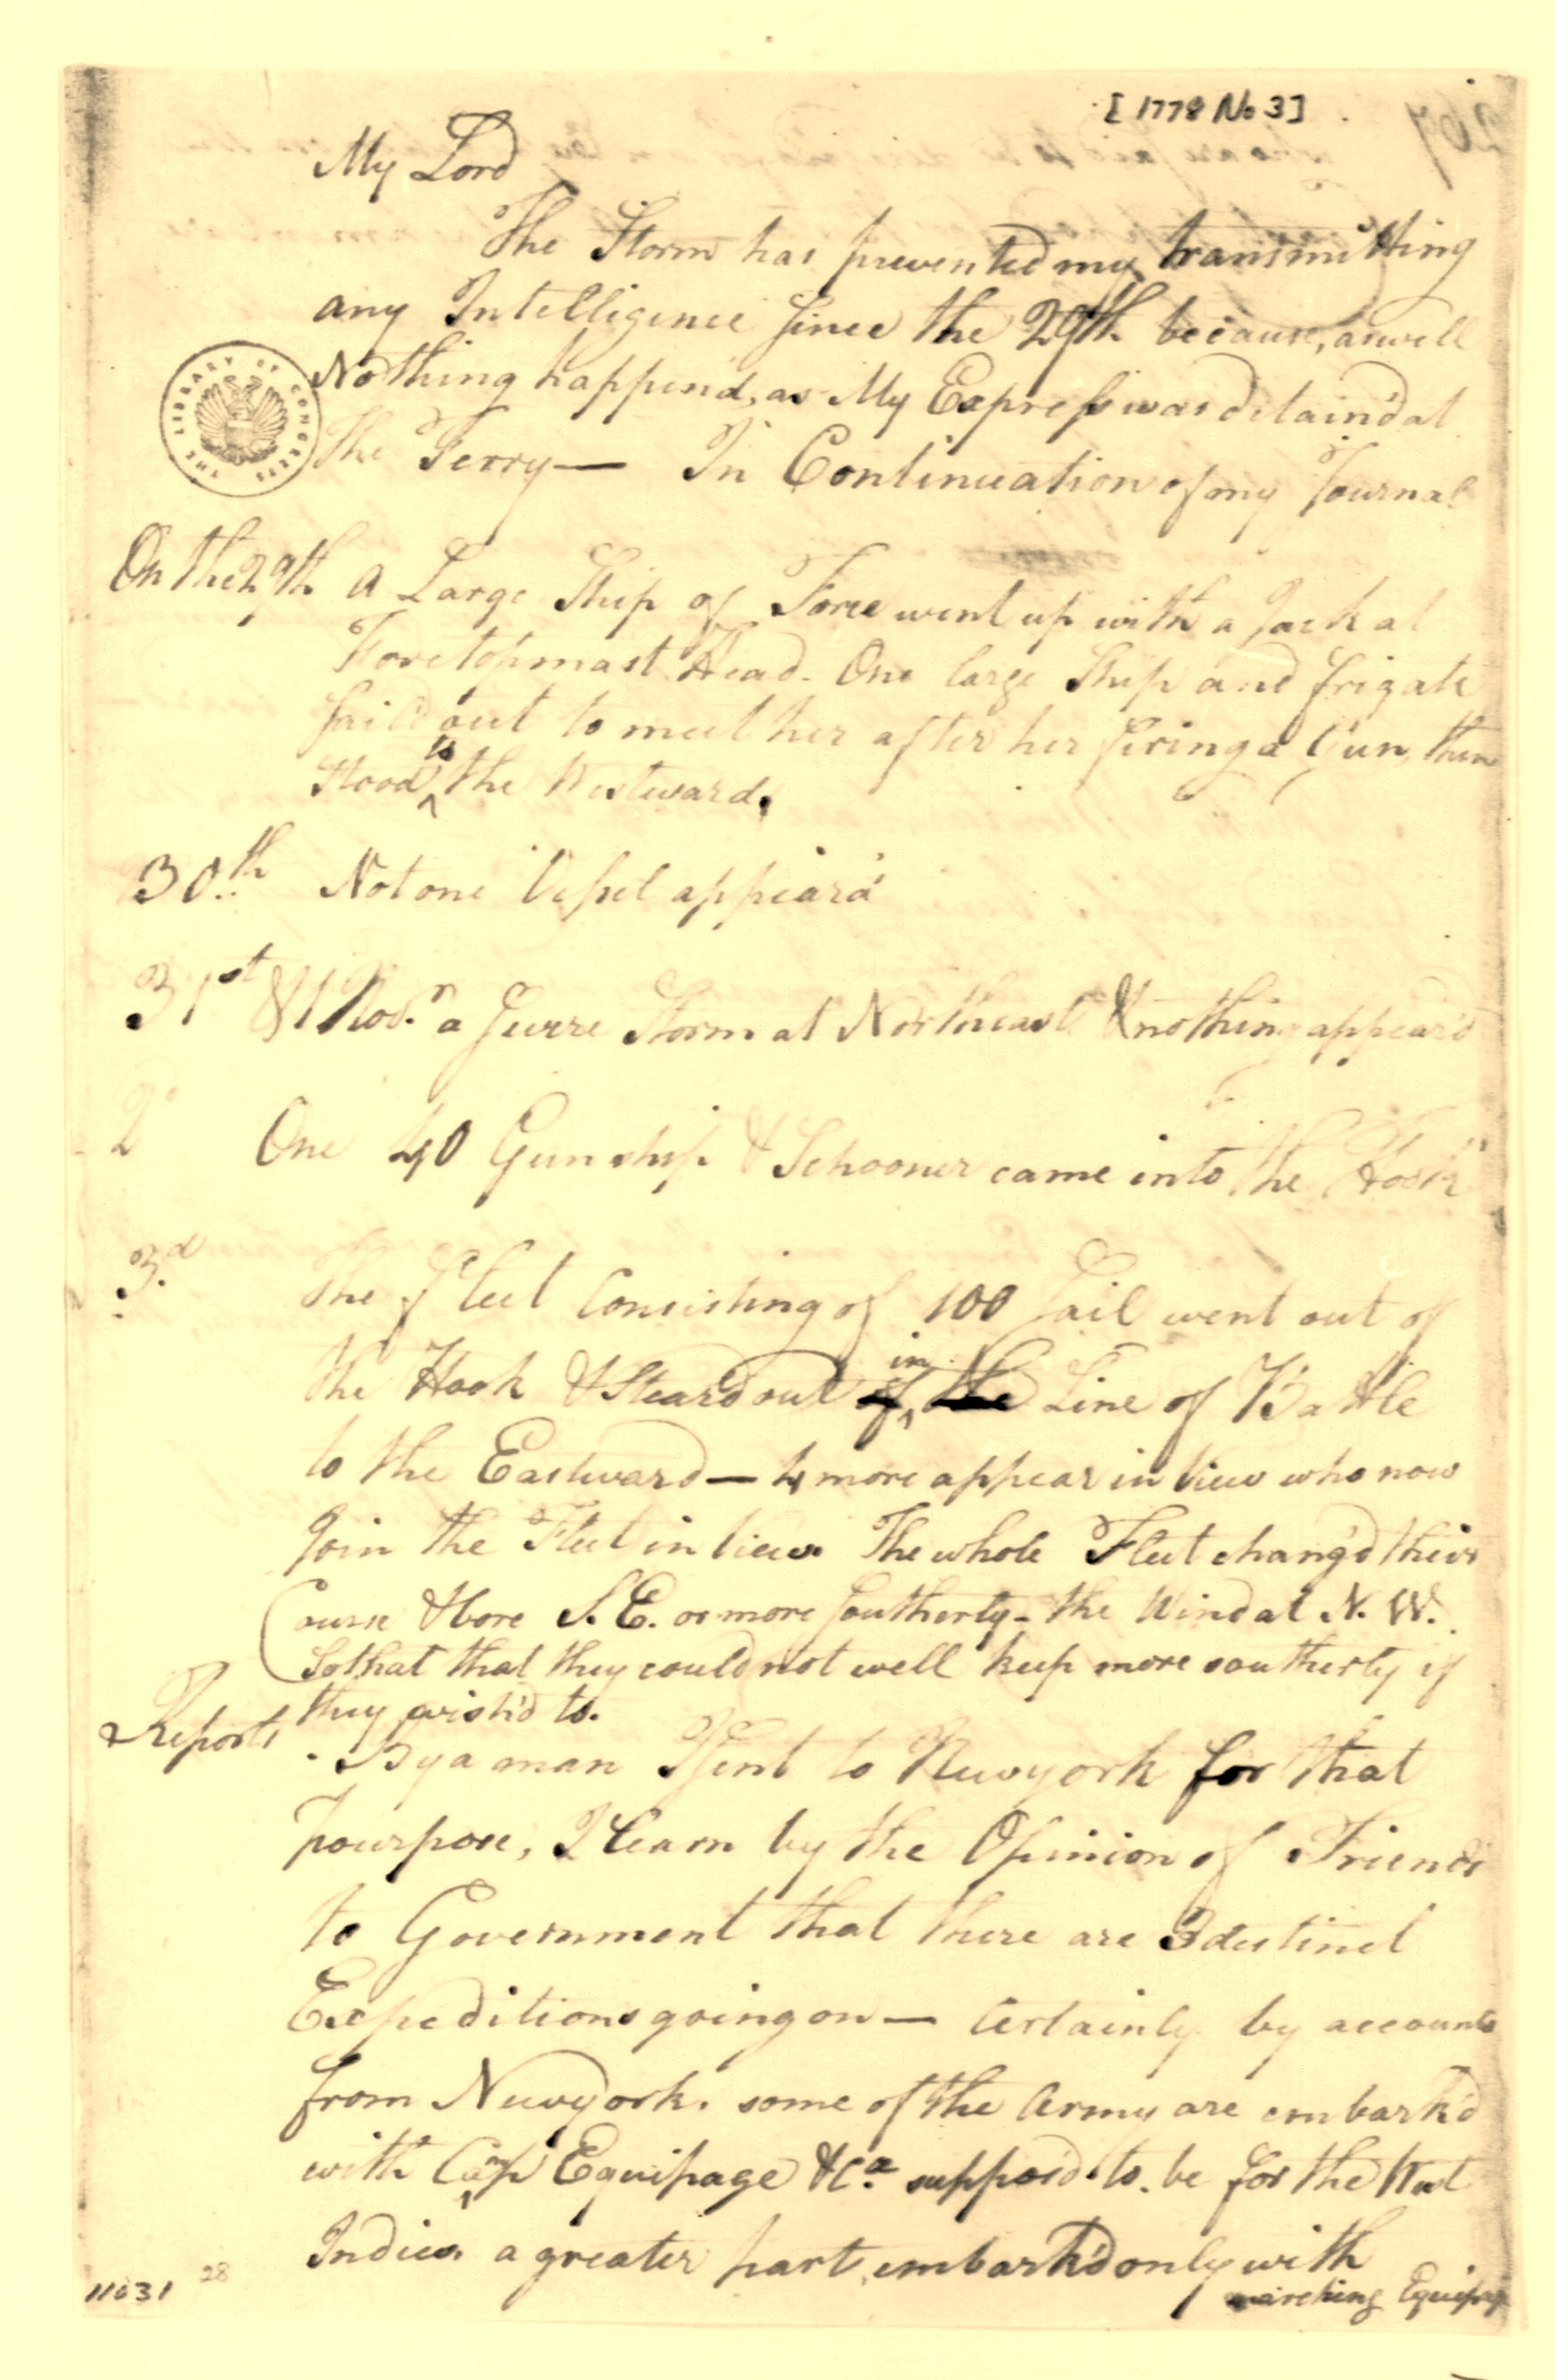 [1778 No 3]
267
My Lord
The Storm has prevented my transmitting
any Intelligence since the 29th because, aswell
Nothing happend, as My Express was detaind at
the Ferry — In Continuation of my Journal
THE LIBRARY OF CONGRESS
On the 29th A Large Ship of Force went up with a Jack at
Foretopmast Head. One large Ship and frigate
saild out to meet her after her firing a Gun, then
Stood to the Westward.
30th Not one Vessel appeard
31st & 1 Novr a Severe Storm at Northeast & nothing appeard
2d One 40 Gun ship & Schooner came into the Hook
3d The Fleet Consisting of 100 Sail went out of
the Hook & Steard out of in the Line of Battle
to the Eastward — 4 more appear in View who now
Join the Fleet in View The whole Fleet changd their
Course & bore S.E. or more Southerly - the Wind at N.W.
So that that they could not well keep more southerly if
they wish'd to.
Reports
By a man I sent to Newyork for that
pourpose, I learn by the Opinion of Friends
to Government that there are 3 destinct
Expeditions going on — Certainly by accounts
from Newyork. some of the Army are embark'd
with Camp Equipage &Ca supposd to be for the West
Indies a greater part embark'd only with
marching Equipage
11031 28